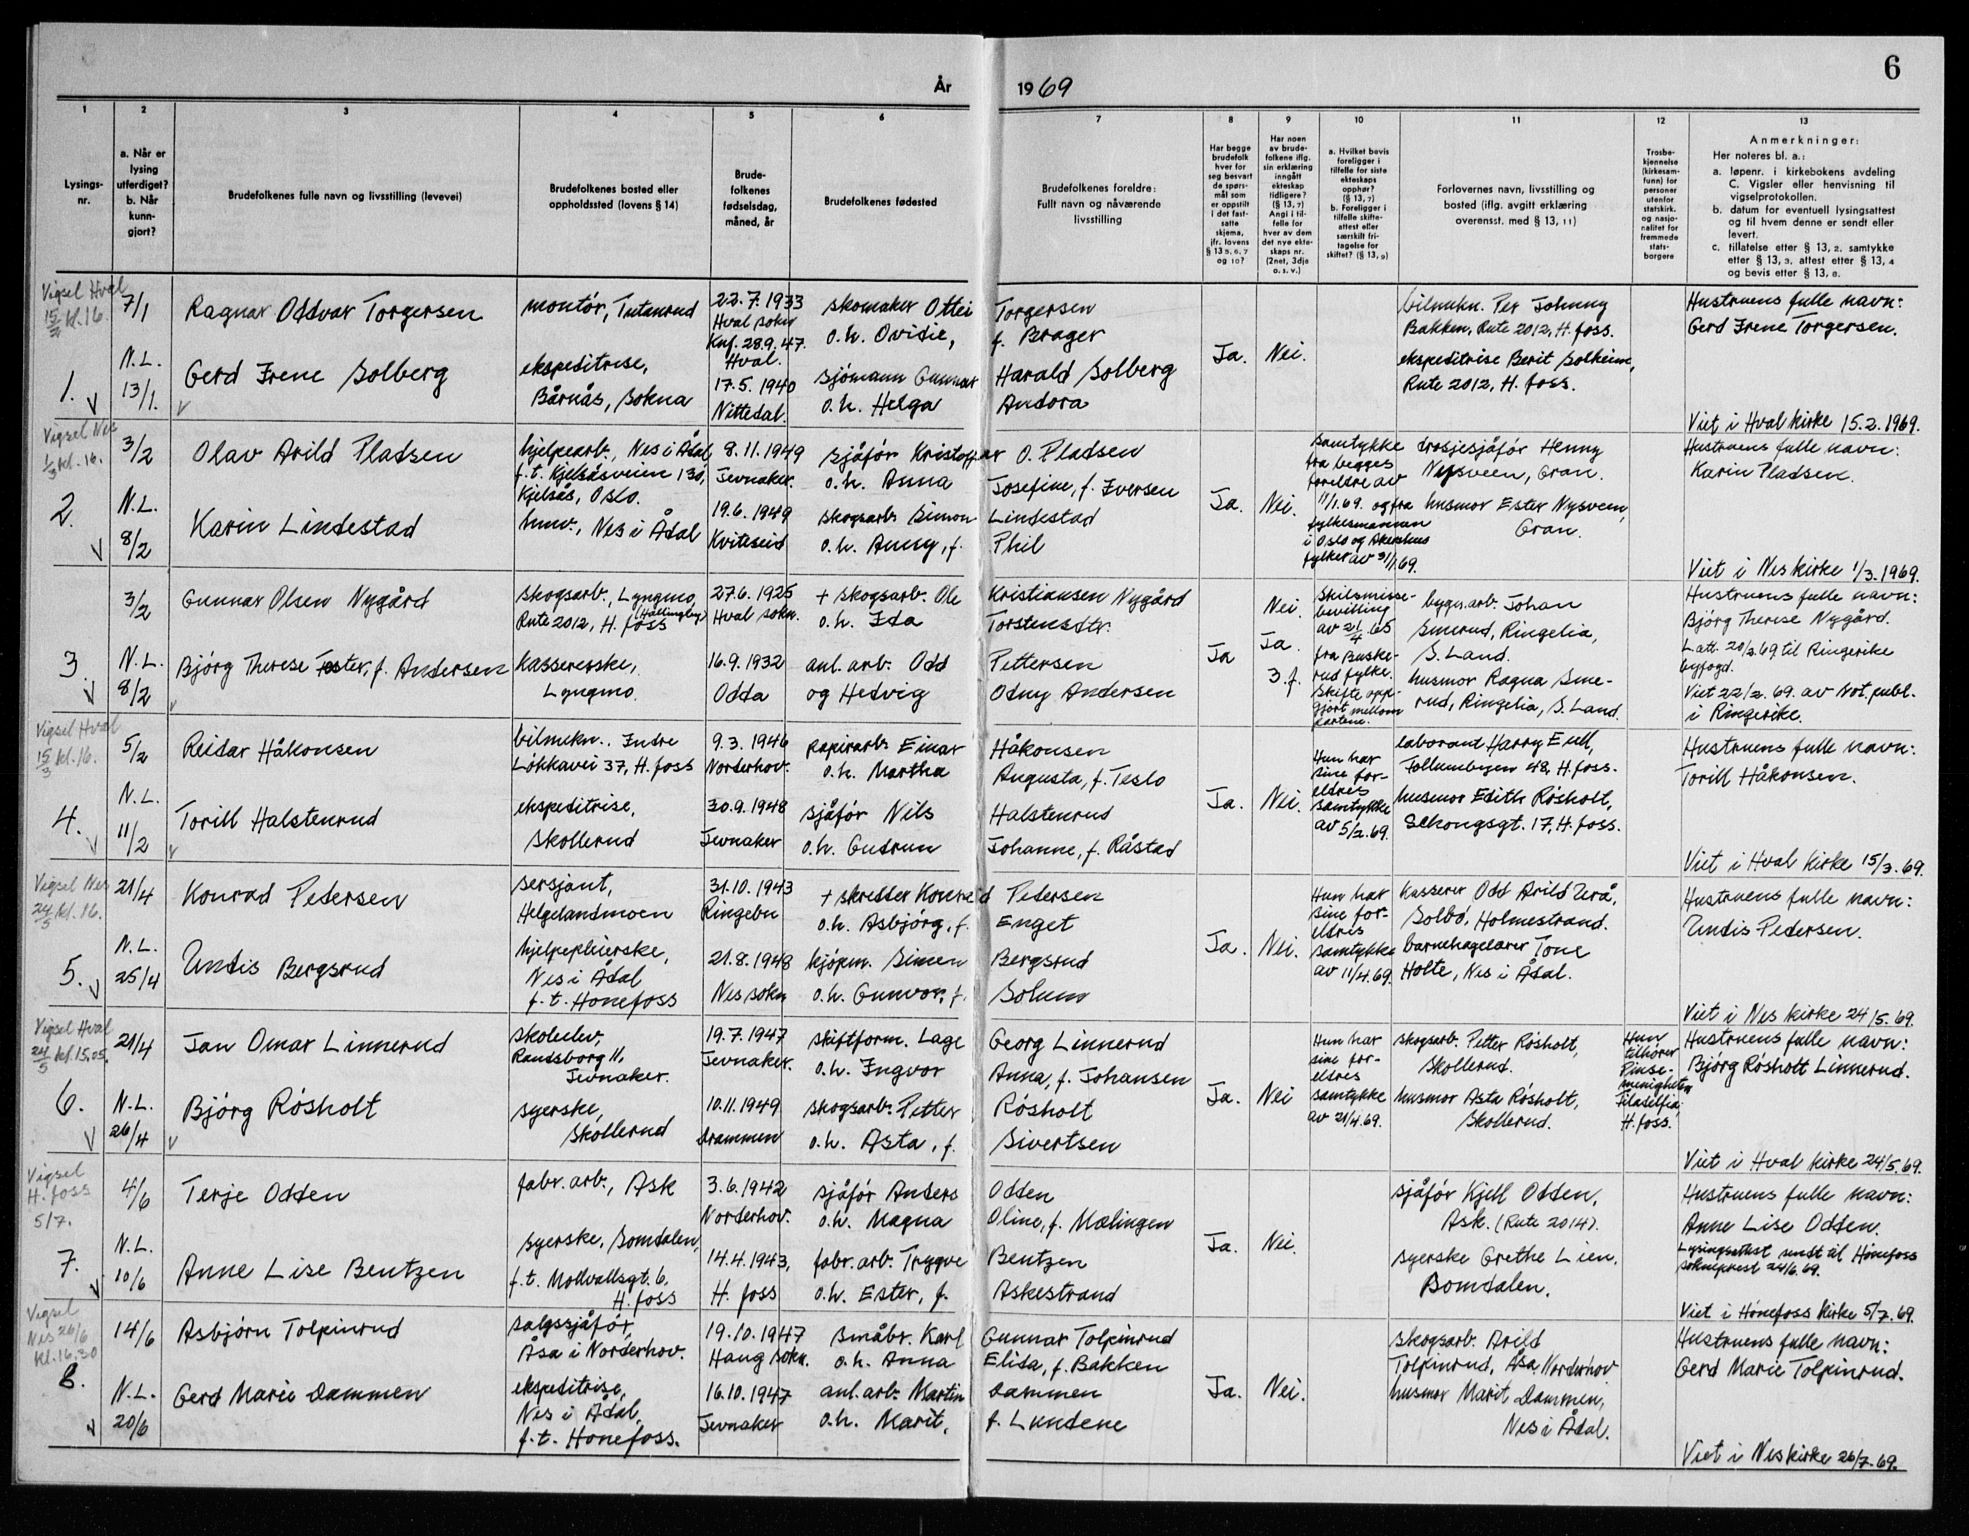 6
År 1969
1
2
3
4
5
6
7
8
9
10
11
12
13
Lysings-
nr.
a. Når er
lysing
utferdiget?
b. Når
kunn-
gjort?
Brudefolkenes fulle navn og livsstilling (levevei)
Brudefolkenes bosted eller
oppholdssted (lovens § 14)
Brude-
folkenes
fødselsdag,
måned, år
Brudefolkenes fødested
Brudefolkenes foreldre:
Fullt navn og nåværende
livsstilling
Har begge
brudefolk
hver for
seg besvart
de spørs-
mål som
er oppstilt
i det fast-
satte
skjema,
jfr. lovens
§ 13 5, 6, 7
og 10?
Har noen
av brude-
folkene iflg.
sin erklæring
inngått
ekteskap
tidligere?
(§ 13, 7)
Angi i til-
felle for
hver av dem
det nye ekte-
skaps nr.
(2net, 3dje
o. s. v.)
a. Hvilket bevis
foreligger i
tilfelle for siste
ekteskaps
opphør?
(§ 13, 7)
b. Foreligger i
tilfelle skifte-
attest eller
særskilt fri-
tagelse for
skiftet? (§ 13, 9)
Forlovernes navn, livsstilling og
bosted (iflg. avgitt erklæring
overensst. med § 13, 11)
Trosbe-
kjennelse
(kirkesam-
funn) for
personer
utenfor
statskirk.
og nasjo-
nalitet for
fremmede
stats-
borgere
Anmerkninger:
Her noteres bl. a.:
a. løpenr. i kirkebokens avdeling
C. Vigsler eller henvisning til
vigselprotokollen.
b. datum for eventuell lysingsattest
og til hvem denne er sendt eller
levert.
c. tillatelse etter § 13, 2. samtykke
etter § 13, 3. attest etter § 13, 4
og bevis etter § 13, 8.
Vigsel Hval
15/2 kl. 16.
1.
7/1
N.L.
13/1.
Ragnar Oddvar Torgersen
Gerd Irene Solberg
montør, Tutanrud
ekspeditrise,
Bårnås, Sokna
22.7.1933
Hval sokn
Knf. 28.9.47.
Hval.
17.5.1940
Nittedal.
skomaker Ottei Torgersen
o.h. Ovidie, f. Brager
sjømann Gunnar Harald Solberg
o.h. Helga Andora
Ja.
Nei.
bilmekn. Per Johnny
Bakken, Rute 2012, H. foss.
ekspeditrise Berit Solheim,
Rute 2012, H. foss.
Hustruens fulle navn:
Gerd Irene Torgersen.
Viet i Hval kirke 15.2.1969.
Vigsel Nes
1/3 kl. 16.
2.
3/2
N.L.
8/2
Olav Arild Pladsen
Karin Lindestad
hjelpearb., Nes i Ådal
f.t. Kjelsåsveien 130,
Kjelsås, Oslo.
husv., Nes i Ådal
8.11.1949
Jevnaker.
19.6.1949
Kviteseid
sjåfør Kristoffer O. Pladsen
o.h. Anna Josefine, f. Iversen
skogsarb. Simon Lindestad
o.h. Anny, f. Phil
Ja.
Nei.
samtykke
fra begges
foreldre av
11/1.69. og fra
fylkesmannen
i Oslo og Akershus
fylker av 31/1.69.
drosjesjåfør Henny
Nysveen, Gran.
husmor Ester Nysveen,
Gran.
Hustruens fulle navn:
Karin Pladsen.
Viet i Nes kirke 1/3.1969.
3.
3/2
N.L.
8/2
Gunnar Olsen Nygård
Bjørg Therese Foster, f. Andersen
skogsarb., Lyngmo,
(Hallingby)
Rute 2012, H. foss
kassererske,
Lyngmo.
27.6.1925
Hval sokn.
16.9.1932
Odda
+ skogsarb. Ole Kristiansen Nygård
o.h. Ida Torstensdtr.
anl. arb. Odd Pettersen
og Hedvig Odny Andersen
Ja
Nei
Ja.
3.f.
Skilsmisse-
bevilling
av 21/4 65
fra Buske-
rud fylke.
Skifte opp-
gjort mellom
partene.
bygn.arb. Johan
Smerud, Ringelia,
S. Land.
husmor Ragna Sme-
rud, Ringelia, S. Land.
Hustruens fulle navn:
Bjørg Therese Nygård.
L.att. 20/2.69 til Ringerike
byfogd.
Viet 22/2.69. av Not. publ.
i Ringerike.
Vigsel Hval
15/3 kl. 16.
4.
5/2
N.L.
11/2
Reidar Håkonsen
Torill Halstenrud
bilmekn.. Indre
Løkkavei 37, H. foss
ekspeditrise,
Skollerud
9.3.1946
Norderhov.
30.9.1948
Jevnaker
papirarb. Einar Håkonsen
o.h. Martha Augusta, f. Teslo
sjåfør Nils Halstenrud
o.h. Gudrun Johanne, f. Råstad
Ja.
Nei.
Hun har
sine for-
eldres
samtykke
av 5/2.69.
laborant Harry Eull,
Follumbyen 48, H. foss.
husmor Edith Røsholt,
Schongsgt. 17, H. foss.
Hustruens fulle navn:
Torill Håkonsen.
Viet i Hval kirke 15/3.69.
Vigsel Nes
24/5 kl. 16.
5.
21/4
N.L.
25/4
Konrad Pedersen
Undis Bergsrud
sersjant,
Helgelandmoen
hjelpepleierske,
Nes i Ådal
f.t. Hønefoss
31.10.1943
Ringebu
21.8.1948
Nes sokn
+ skredder Konrad Pedersen
o.h. Asbjørg, f. Enget
kjøpm. Simen Bergsrud
o.h. Gunvor, f. Solum
Ja.
Nei.
Hun har
sine for-
eldres
samtykke
av 11/4.69.
kasserer Odd Arild Urå,
Solbø, Holmestrand.
barnehagelærer Tone
Holte, Nes i Ådal.
Hustruens fulle navn:
Undis Pedersen.
Viet i Nes kirke 24/5.69.
Vigsel Hval
24/5 kl. 15.05.
6.
21/4
N.L.
26/4
Jan Omar Linnerud
Bjørg Røsholt
skoleelev,
Randsborg 11,
Jevnaker.
syerske,
Skollerud
19.7.1947
Jevnaker.
10.11.1949
Drammen
skiftform. Lage Georg Linnerud
o.h. Ingvor Anna, f. Johansen
skogsarb. Petter Røsholt
o.h. Asta, f. Sivertsen
Ja.
Nei
Hun har
sine for-
eldres
samtykke
av 21/4.69.
skogsarb. Petter Røsholt,
Skollerud.
husmor Asta Røsholt,
Skollerud.
Hun
tilhører
Pinse-
menigheten
Filadelfia,
H. foss.
Hustruens fulle navn:
Bjørg Røsholt Linnerud.
Viet i Hval kirke 24/5.69.
Vigsel
H. foss
5/7.
7.
4/6
N.L.
10/6
Terje Odden
Anne Lise Bentzen
fabr. arb., Ask
syerske, Somdalen,
f.t. Mollvallsgt. 6,
H. foss
3.6.1942
Norderhov.
14.4.1943,
H. foss
sjåfør Anders Odden
o.h. Magna Oline, f. Mælingen
fabr. arb. Trygve Bentzen
o.h. Ester, f. Askestrand
Ja.
Nei.
sjåfør Kjell Odden,
Ask. (Rute 2014).
syerske Grethe Lien,
Somdalen.
Hustruens fulle navn:
Anne Lise Odden.
Lysingsattest sendt til Hønefoss
sokneprest 24/6.69.
Viet i Hønefoss kirke 5/7.69.
Vigsel
Nes 26/6
kl. 16.30
8.
14/6
N.L.
20/6
Asbjørn Tolpinrud
Gerd Marie Dammen
salgssjåfør,
Åsa i Norderhov.
ekspeditrise,
Nes i Ådal,
f.t. Hønefoss.
19.10.1947
Haug sokn.
16.10.1947
Jevnaker
småbr. Karl Gunnar Tolpinrud
o.h. Anna Elida, f. Bakken
anl. arb. Martin Dammen
o.h. Marit, f. Lundene
Ja.
Nei.
skogsarb. Arild
Tolpinrud, Åsa, Norderhov
husmor Marit Dammen,
Nes i Ådal.
Hustruens fulle navn:
Gerd Marie Tolpinrud.
Viet i Nes kirke 26/7.69.